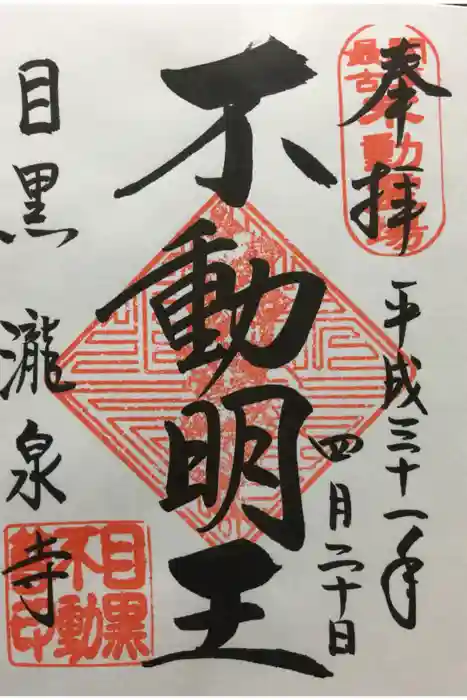 奉拝
平成三十一年
四月二十日
不動明王
目黒 瀧泉寺
関東
最古不動霊場
目黒
不動